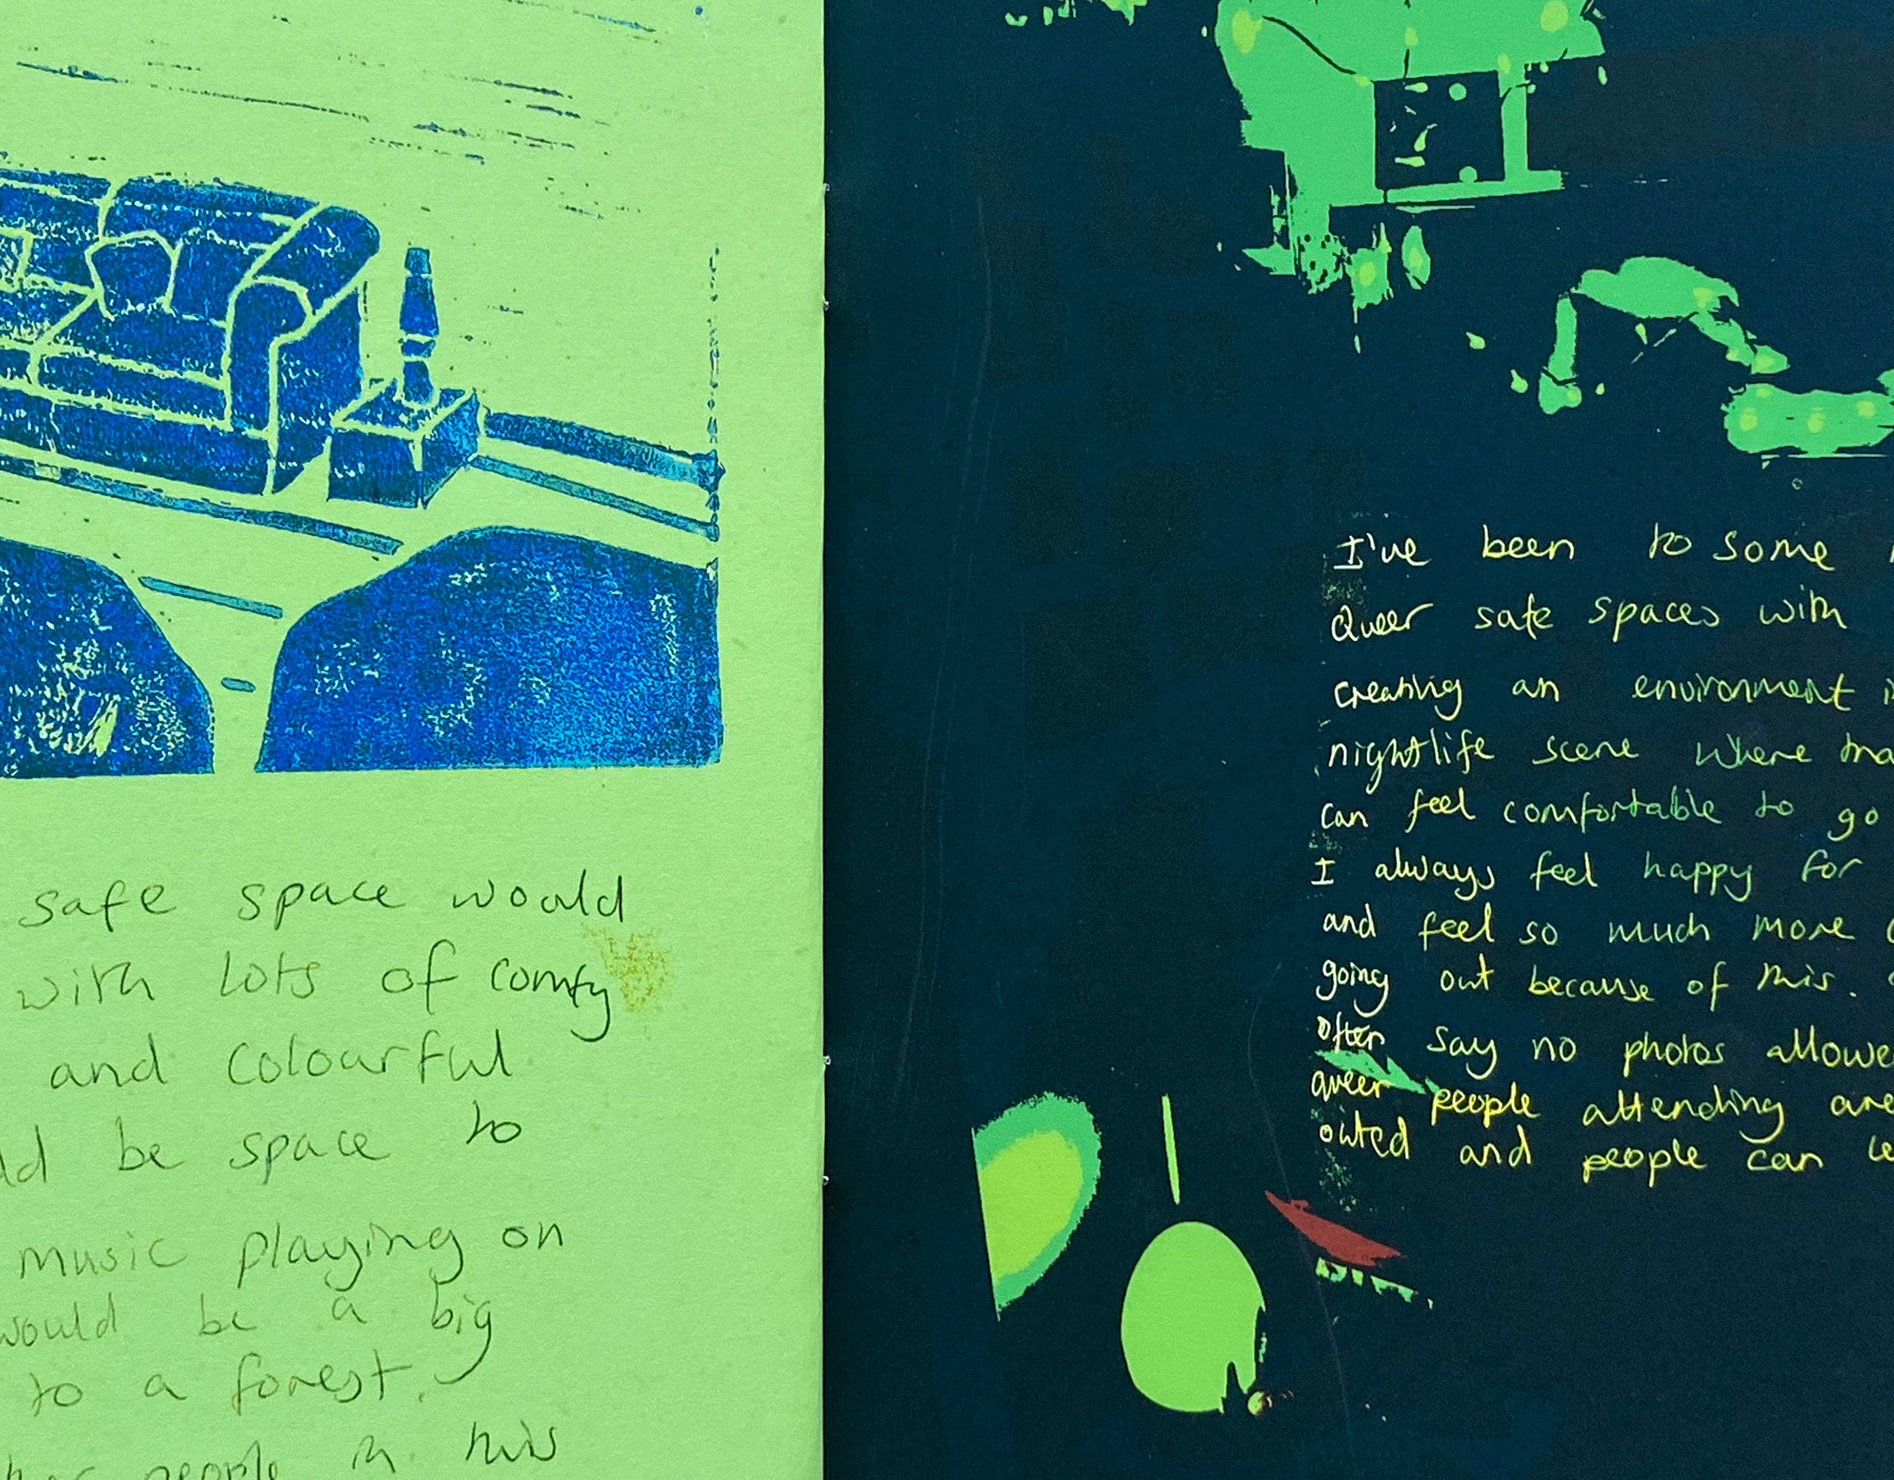 safe space would
with lots of comfy
and colourful
be space to
music playing on
would be a big
to a forest.
people in this
I've been to some
Queer safe spaces with
creating an environment
nightlife scene where
can feel comfortable to go
I always feel happy for
and feel so much more
going out because of this.
often say no photos allowe
queer people attending are
outed and people can